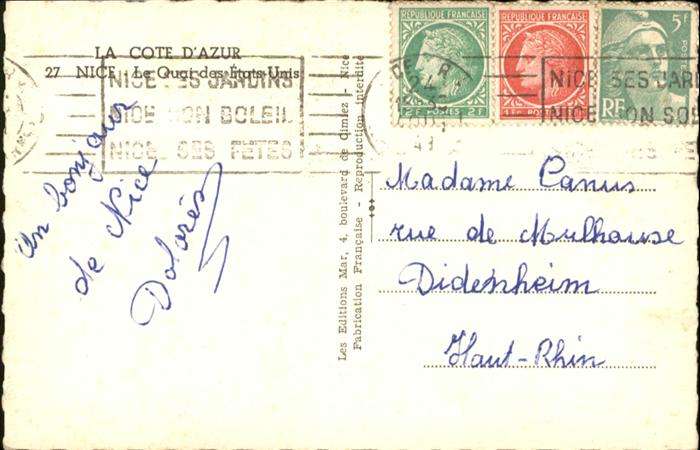 LA COTE D'AZUR
27 NICE Le Quai des Etats-Unis
NICE SES JARDINS
NICE SON SOLEIL
NICE SES FETES
Un bonjour
de Nice
Dolorès
Les Editions Mar, 4, boulevard de Cimiez - Nice
Fabrication Française - Reproduction interdite
REPUBLIQUE FRANÇAISE
2F POSTES 2F
REPUBLIQUE FRANÇAISE
5F
RF
NICE SES JARD
NICE SON SOL
Madame Canus
rue de Mulhouse
Didenheim
Haut-Rhin